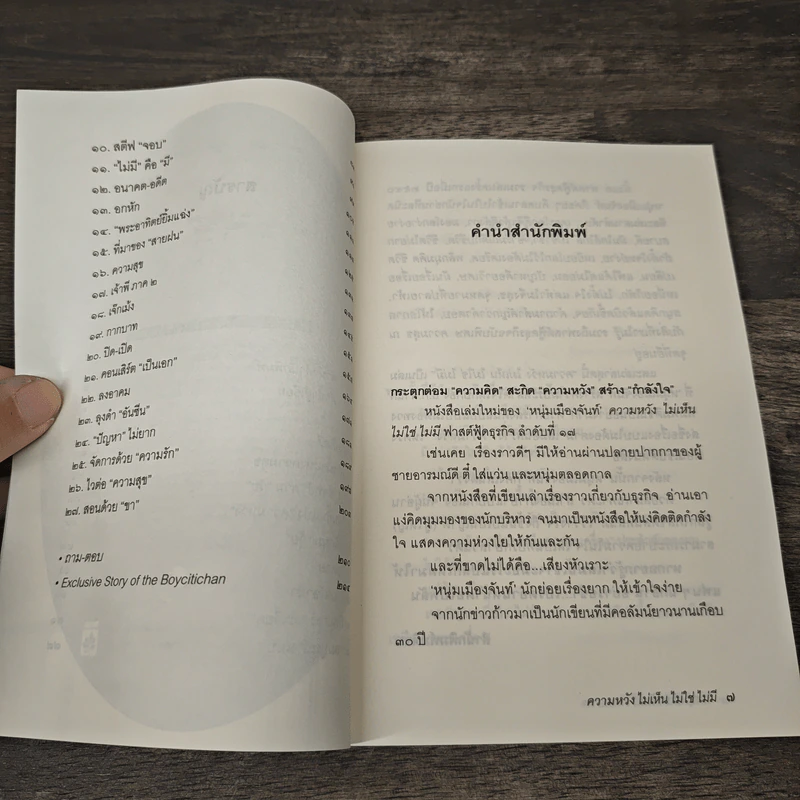 ๑๐. สตีฟ "จอบ"
๑๑. "ไม่มี" คือ "มี"
๑๒. อนาคต-อดีต
๑๓. อกหัก
๑๔. "พระอาทิตย์ยิ้มแฉ่ง"
๑๕. ที่มาของ "สายฝน"
๑๖. ความสุข
๑๗. เจ้าพี่ ภาค ๒
๑๘. เจ๊กเม้ง
๑๙. กากบาท
๒๐. ปิด-เปิด
๒๑. คอนเสิร์ต "เป็นเอก"
๒๒. ลงอาคม
๒๓. ลุงดำ "อันซีน"
๒๔. "ปัญหา" ไม่ยาก
๒๕. จัดการด้วย "ความรัก"
๒๖. ไวต่อ "ความสุข"
๒๗. สอนด้วย "ขา"
• ถาม-ตอบ ๒๑๐
• Exclusive Story of the Boycitichan ๒๑๔
คำนำสำนักพิมพ์
กระตุกต่อม "ความคิด" สะกิด "ความหวัง" สร้าง "กำลังใจ"
หนังสือเล่มใหม่ของ 'หนุ่มเมืองจันท์' ความหวัง ไม่เห็น
ไม่ใช่ ไม่มี ฟาสต์ฟู้ดธุรกิจ ลำดับที่ ๑๗
เช่นเคย เรื่องราวดีๆ มีให้อ่านผ่านปลายปากกาของผู้
ชายอารมณ์ดี ตี๋ ใส่แว่น และหนุ่มตลอดกาล
จากหนังสือที่เขียนเล่าเรื่องราวเกี่ยวกับธุรกิจ อ่านเอา
แง่คิดมุมมองของนักบริหาร จนมาเป็นหนังสือให้แง่คิดติดกำลัง
ใจ แสดงความห่วงใยให้กันและกัน
และที่ขาดไม่ได้คือ...เสียงหัวเราะ
'หนุ่มเมืองจันท์' นักย่อยเรื่องยาก ให้เข้าใจง่าย
จากนักข่าวก้าวมาเป็นนักเขียนที่มีคอลัมน์ยาวนานเกือบ
๓๐ ปี
ความหวัง ไม่เห็น ไม่ใช่ ไม่มี ๗